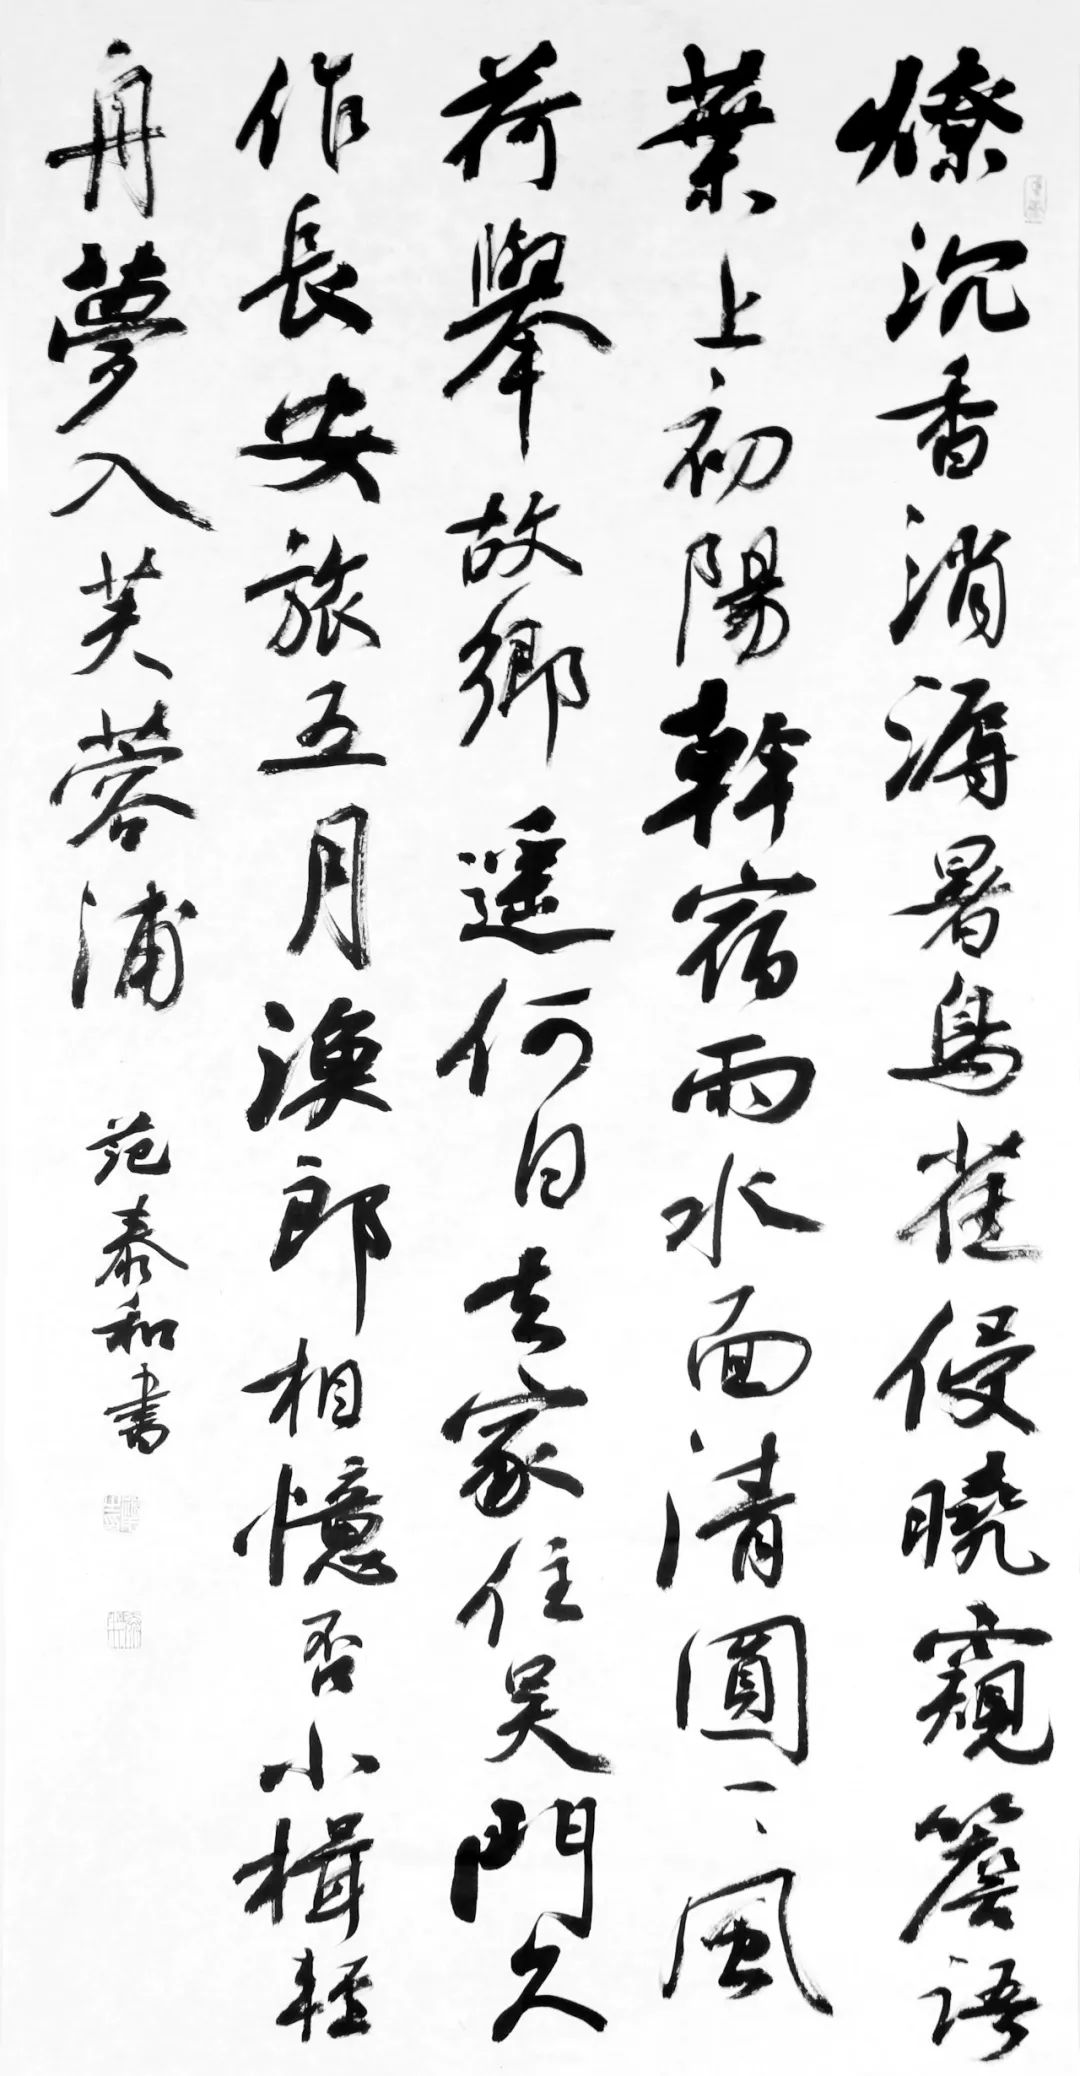 燎沉香消溽暑鳥雀侵曉窺簷語
葉上初陽幹宿雨水面清圓一〻風
荷舉故鄉遙何日去家住吳門久
作長安旅五月漁郎相憶否小楫輕
舟夢入芙蓉浦
范泰和書